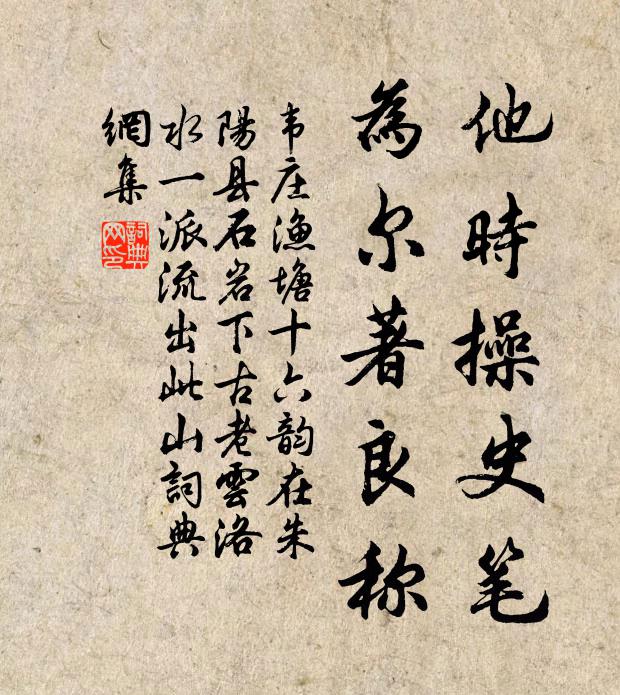 他時操史笔
為尔著良称
韦庄漁塘十六韵在朱
陽县石岩下古老雲洛
水一派流出此山詞典
網集
詞典
网印